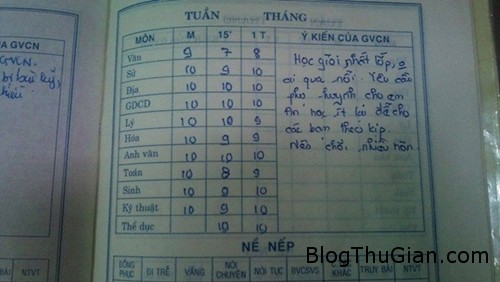 TUẦN THÁNG
Ý KIẾN CỦA GVCN
GVCN
MÔN M 15' 1 T Ý KIẾN CỦA GVCN
Văn 9 7 8
Sử 10 9 10
Địa 10 10 10
GDCD 10 10 10
Lý 10 10 9
Hóa 10 9 9
Anh văn 10 10 10
Toán 10 8 9
Sinh 10 9 10
Kỹ thuật 10 9 10
Thể dục 10 10
Học giỏi nhất lớp, o
ai qua nổi. Yêu cầu
phụ huynh cho em
ăn học ít lại để cho
các bạn theo kịp.
Nên chơi nhiều hơn
NỀ NẾP
ĐỒNG PHỤC ĐI TRỄ VẮNG NÓI CHUYỆN NÓI TỤC BVCSVS CÔNG KHÁC TRUY BÀI NTVT
BÀI NTVT
BlogThuGian.com